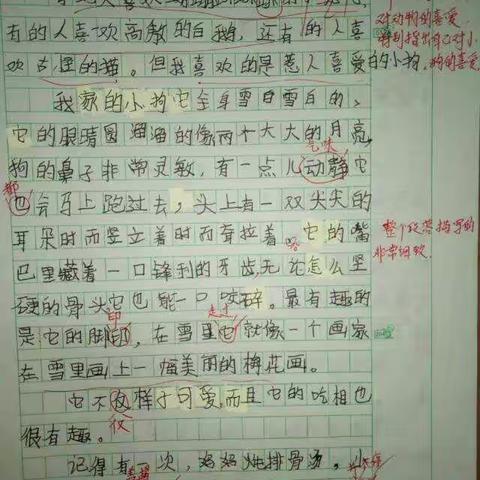 有的人喜欢高傲的白鹅,还有的人喜
欢古怪的猫。但我喜欢的是惹人喜爱的小狗,
对动物的喜爱
特别指出自己对小
狗的喜爱
我家的小狗它全身雪白雪白的,
它的眼睛圆溜溜的像两个大大的月亮
狗的鼻子非常灵敏,有一点儿动静它
气味
都
也会马上跑过去,头上有一双尖尖的
耳朵时而竖立着时而耷拉着。它的嘴
巴里藏着一口锋利的牙齿,无论怎么坚
整个段落描写的
非常细致
硬的骨头它也能一口咬碎。最有趣的
是它的脚印,在雪里它就像一个画家
印
走过
在雪里画上一幅美丽的梅花画。
它不仅样子可爱,而且它的吃相也
仅
很有趣。
记得有一次,妈妈炖排骨汤。小